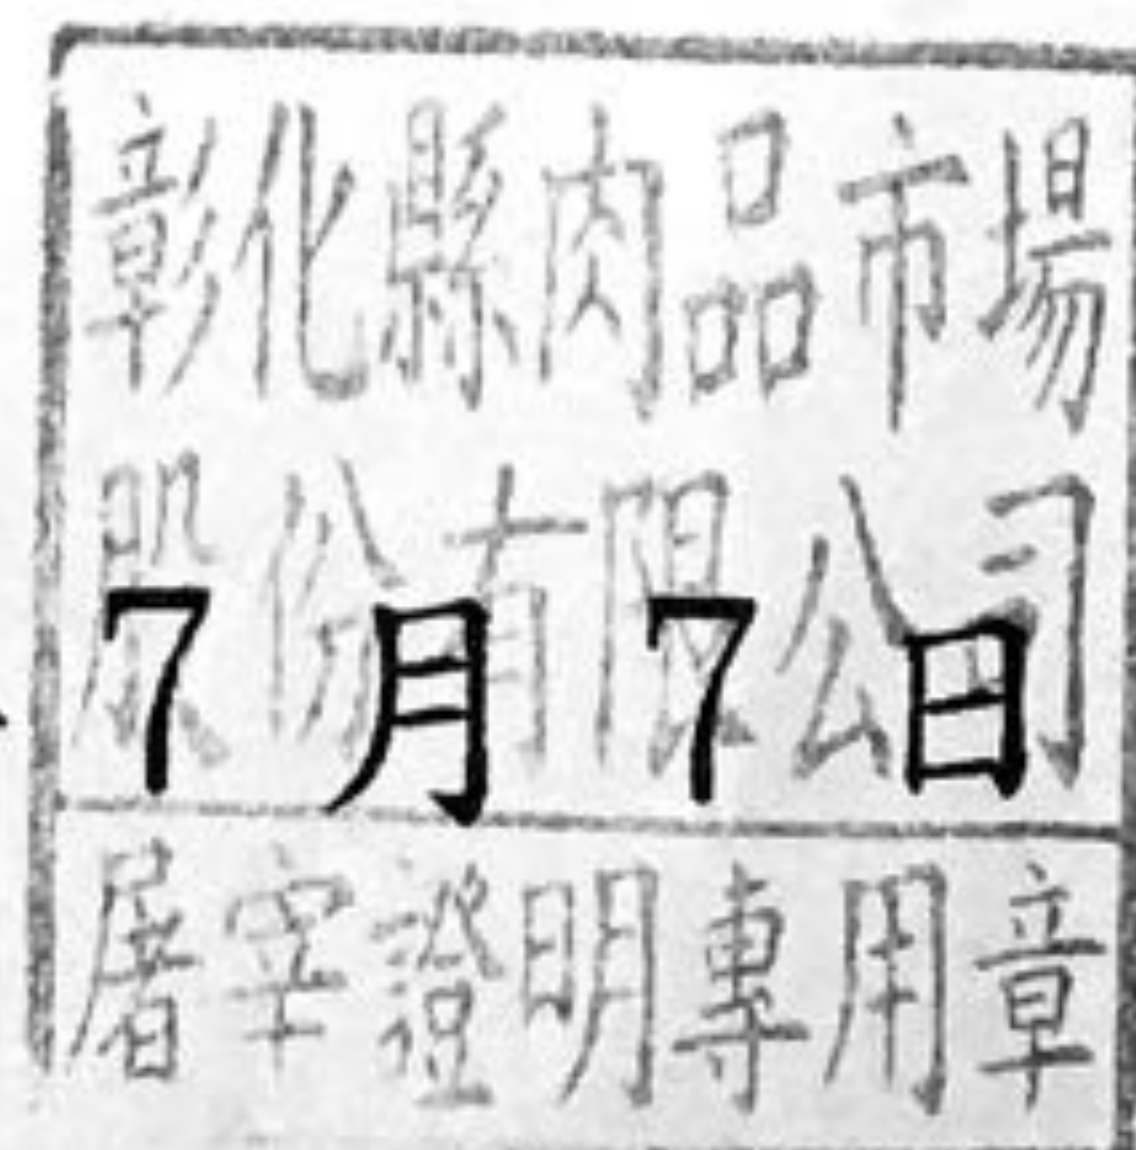 彰化縣肉品市場
股份有限公司
7月7日
屠宰證明專用章